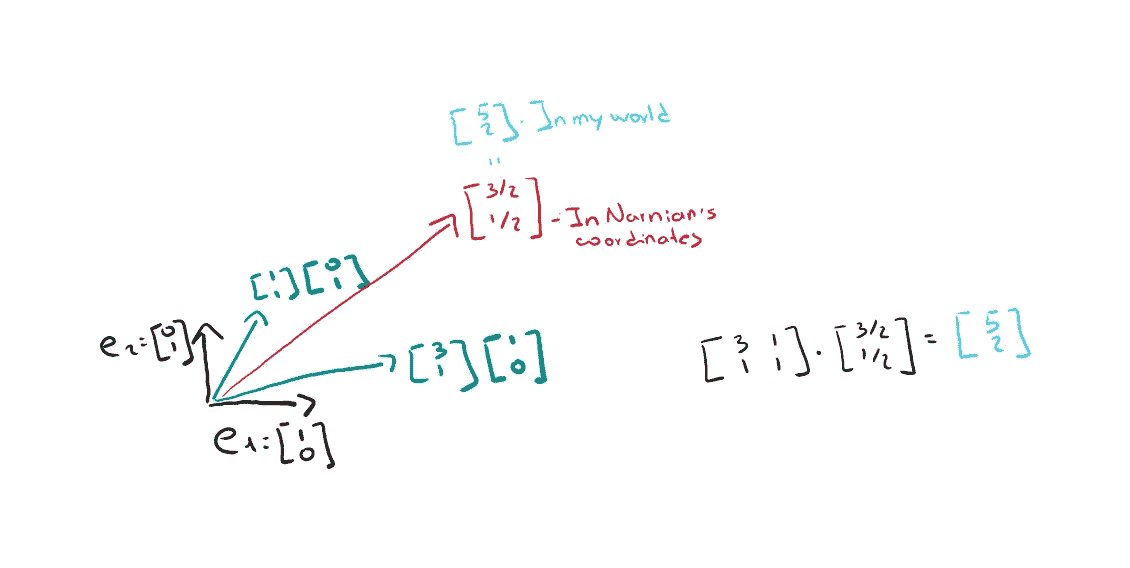 [5 2] . In my world
"
[3/2 1/2] - In Narnian's
coordinates
[1 1] [0 1]
e2 = [0 1]
[3 1] [1 0]
e1 = [1 0]
[3 1 1 1] . [3/2 1/2] = [5 2]